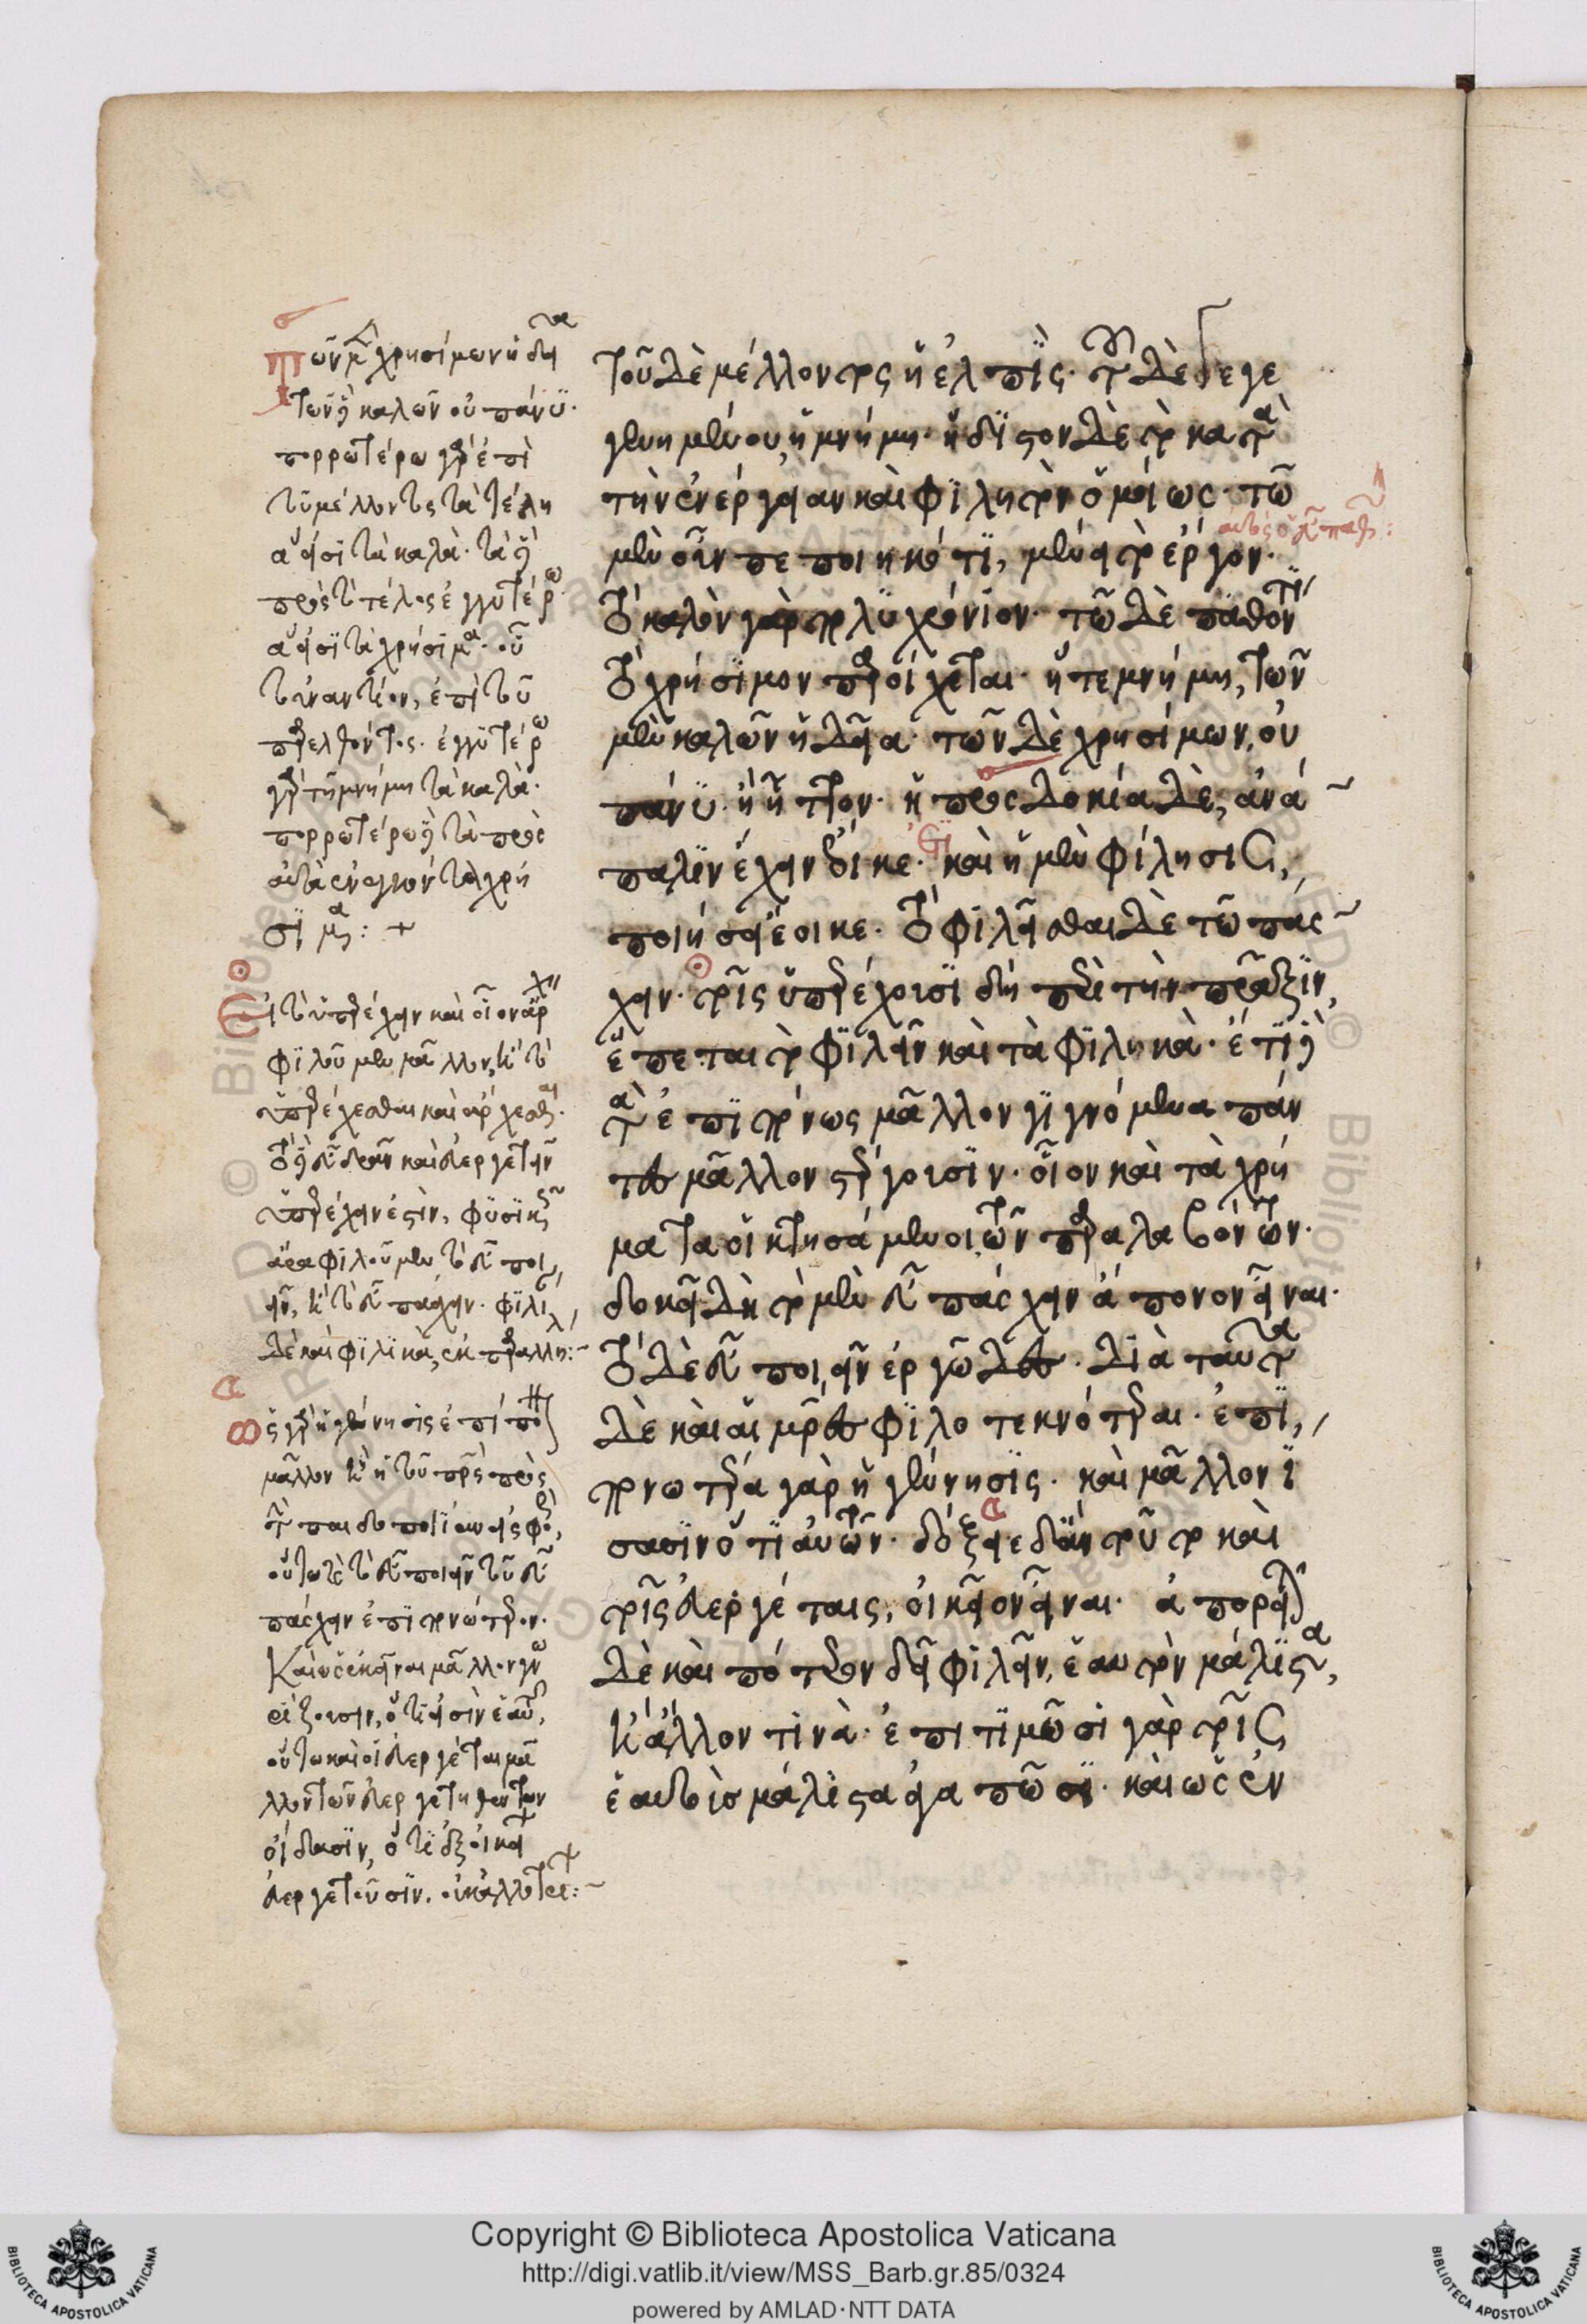 τοῦ δὲ μέλλοντος ἡ ἐλπίς· τοῦ δὲ γεγε
γενημένου ἡ μνήμη· ἥδιστον δὲ τὸ κατὰ
τὴν ἐνέργειαν καὶ φιλητὸν ὁμοίως· τῶ
μὲν οὖν πεποιηκότι, μένει τὸ ἔργον·
τὸ καλὸν γὰρ πολυχρόνιον· τῶ δὲ παθόντι
τὸ χρήσιμον παροίχεται· ἥ τε μνήμη, τῶν
μὲν καλῶν ἡδεῖα· τῶν δὲ χρησίμων, οὐ
πάνυ· ἢ ἧττον· ἡ προσδοκία δὲ, ἀνά
παλιν ἔχειν ἔοικε· καὶ ἡ μὲν φίλησις,
ποιήσει ἔοικε· τὸ φιλεῖσθαι δὲ τῶ πάς
χειν· τοῖς ὑπερέχουσι δὴ περὶ τὴν πρᾶξιν,
ἕπεται τὸ φιλεῖν καὶ τὰ φιλικὰ· ἔτι δὲ
τὰ ἐπιπόνως μᾶλλον γιγνόμενα πάν
τες μᾶλλον στέργουσιν· οἷον καὶ τὰ χρή
ματα οἱ κτησάμενοι τῶν παραλαβόντων·
δοκεῖ δὴ τὸ μὲν εὖ πάσχειν ἄπονον εἶναι·
τὸ δὲ εὖ ποιεῖν ἐργῶδες· διὰ ταῦτα
δὲ καὶ αἱ μητέρες φιλοτεκνότεραι· ἐπι
πονωτέρα γὰρ ἡ γέννησις· καὶ μᾶλλον ἴ
σασιν ὅτι αὐτῶν· δόξειε δ' ἂν τοῦτο καὶ
τοῖς εὐεργέταις, οἰκεῖον εἶναι· ἀπορεῖται
δὲ καὶ πότερον δεῖ φιλεῖν, ἑαυτὸν μάλιστα,
ἢ ἄλλον τινὰ· ἐπιτιμῶσι γὰρ τοῖς
ἑαυτοὺς μάλιστα ἀγαπῶσι· καὶ ὡς ἐν
τῶν μὲν χρησίμων ἡδεῖα
τῶν δὲ καλῶν οὐ πάνυ·
πορρωτέρω γὰρ ἐπὶ
τοῦ μέλλοντος τὰ τέλη
εἰσὶ τὰ καλὰ· τὰ δὲ
πρὸς τὸ τέλος ἐγγυτέρω·
εἰσὶ τὰ χρήσιμα· οὗ
τοὐναντίον, ἐπὶ τοῦ
παρελθόντος· ἐγγυτέρω
γὰρ τῇ μνήμη τὰ καλὰ·
πορρωτέρω δὲ τὰ πρὸς
αὐτὰ συντείνοντα χρή
σιμα: +
φιλοῦμεν μᾶλλον, ἢ τὸ
ὑπερέχεσθαι καὶ ἄρχεσθαι·
τὸ δὲ εὖ δρᾶν καὶ εὐεργετεῖν
ὑπερέχειν ἐστὶν, φυσικῶς
ἄρα φιλοῦμεν τὸ εὖ ποι
εῖν, ἢ τὸ εὖ πάσχειν·
μᾶλλον ἢ ἡ τοῦ πατρὸς πρὸς
οὕτω καὶ τὸ εὖ ποιεῖν τοῦ εὖ
πάσχειν ἐπιπονώτερον·
οὕτω καὶ οἱ εὐεργέται μᾶ
λλον τῶν εὐεργετηθέντων
οἴδασιν, ὅτι
εὐεργετοῦσιν.
Copyright © Biblioteca Apostolica Vaticana
http://digi.vatlib.it/view/MSS_Barb.gr.85/0324
powered by AMLAD·NTT DATA
BIBLIOTECA APOSTOLICA VATICANA
BIBLIOTECA APOSTOLICA VATICANA